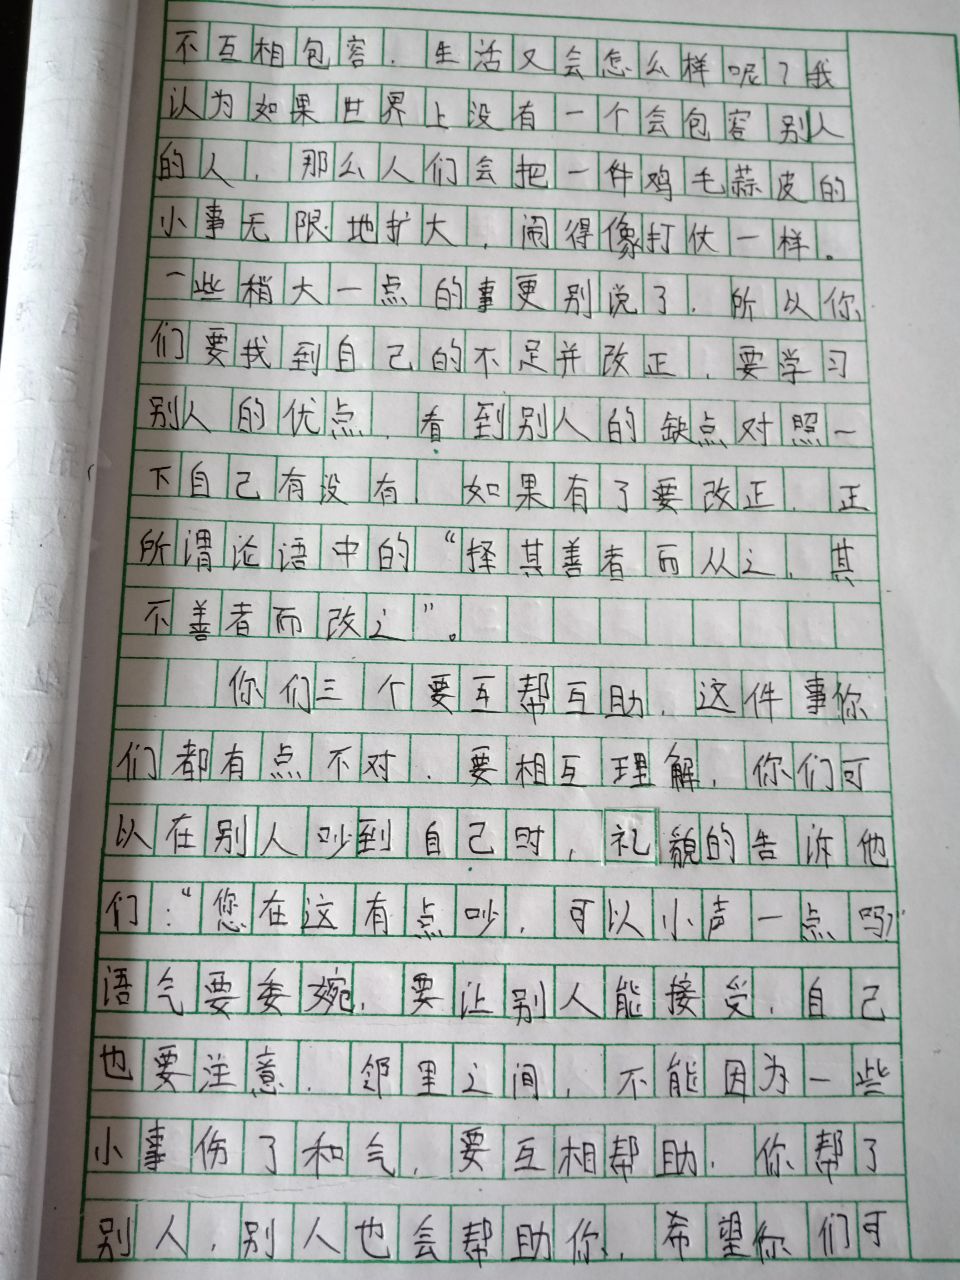 不互相包容，生活又会怎么样呢？我
认为如果世界上没有一个会包容别人
的人，那么人们会把一件鸡毛蒜皮的
小事无限地扩大，闹得像打仗一样。
一些稍大一点的事更别说了，所以你
们要找到自己的不足并改正，要学习
别人的优点，看到别人的缺点对照一
下自己有没有，如果有了要改正，正
所谓论语中的“择其善者而从之，其
不善者而改之”。
你们三个要互帮互助，这件事你
们都有点不对，要相互理解，你们可
以在别人吵到自己时，礼貌的告诉他
们：“您在这有点吵，可以小声一点吗？”
语气要委婉，要让别人能接受，自己
也要注意，邻里之间，不能因为一些
小事伤了和气，要互相帮助，你帮了
别人，别人也会帮助你，希望你们可